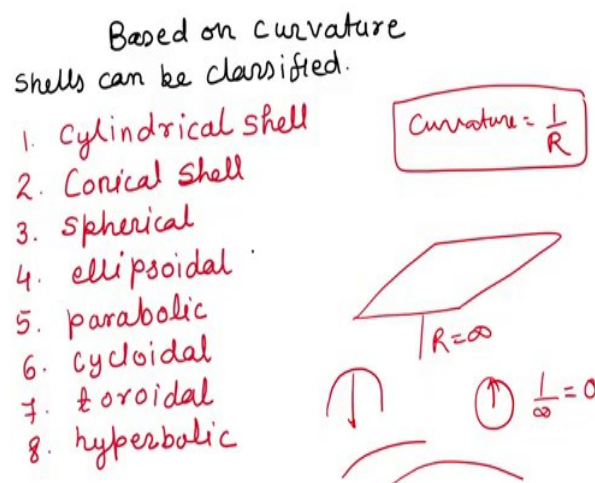 Based on curvature
shells can be classified.
1. Cylindrical shell
2. Conical shell
3. spherical
4. ellipsoidal
5. parabolic
6. cycloidal
7. toroidal
8. hyperbolic
Curvature = 1/R
R=∞
1/∞ = 0